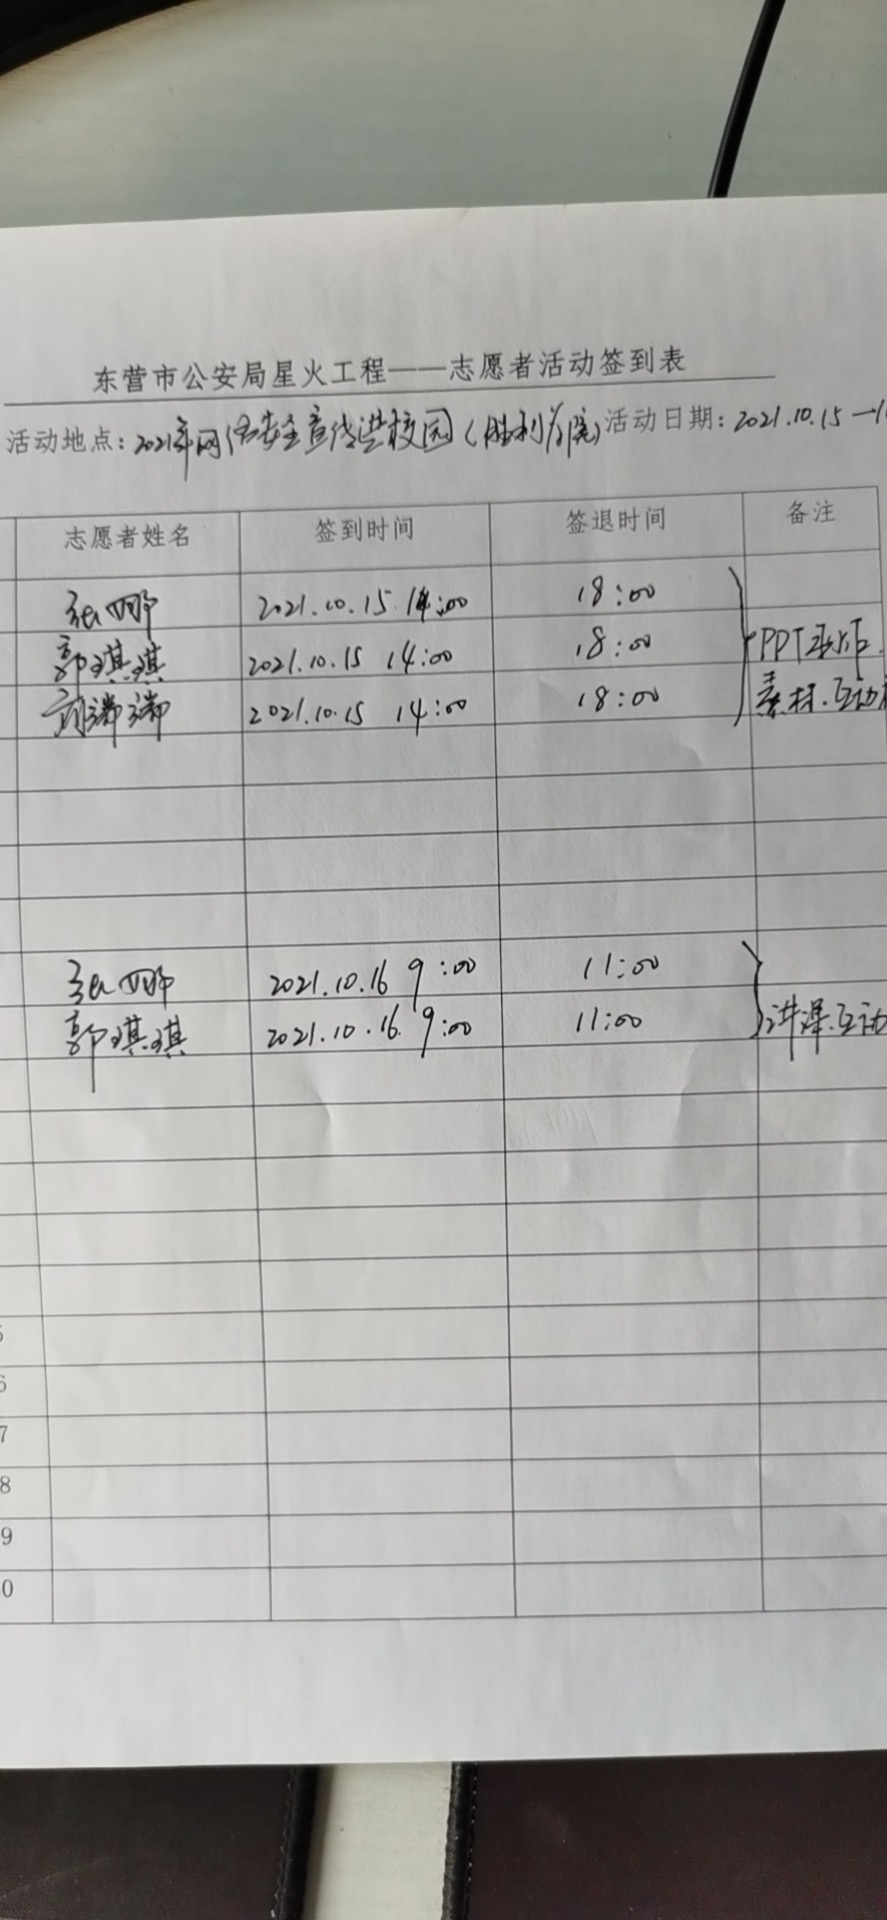 东营市公安局星火工程——志愿者活动签到表
活动地点：2021年网络安全宣传进校园（胜利学院）活动日期：2021.10.15—1
志愿者姓名 签到时间 签退时间 备注
张娜 2021.10.15 14:00 18:00
郭琪琪 2021.10.15 14:00 18:00 PPT
端端 2021.10.15 14:00 18:00 素材.互动
张娜 2021.10.16 9:00 11:00
郭琪琪 2021.10.16 9:00 11:00 讲课.互动
5
6
7
8
9
0